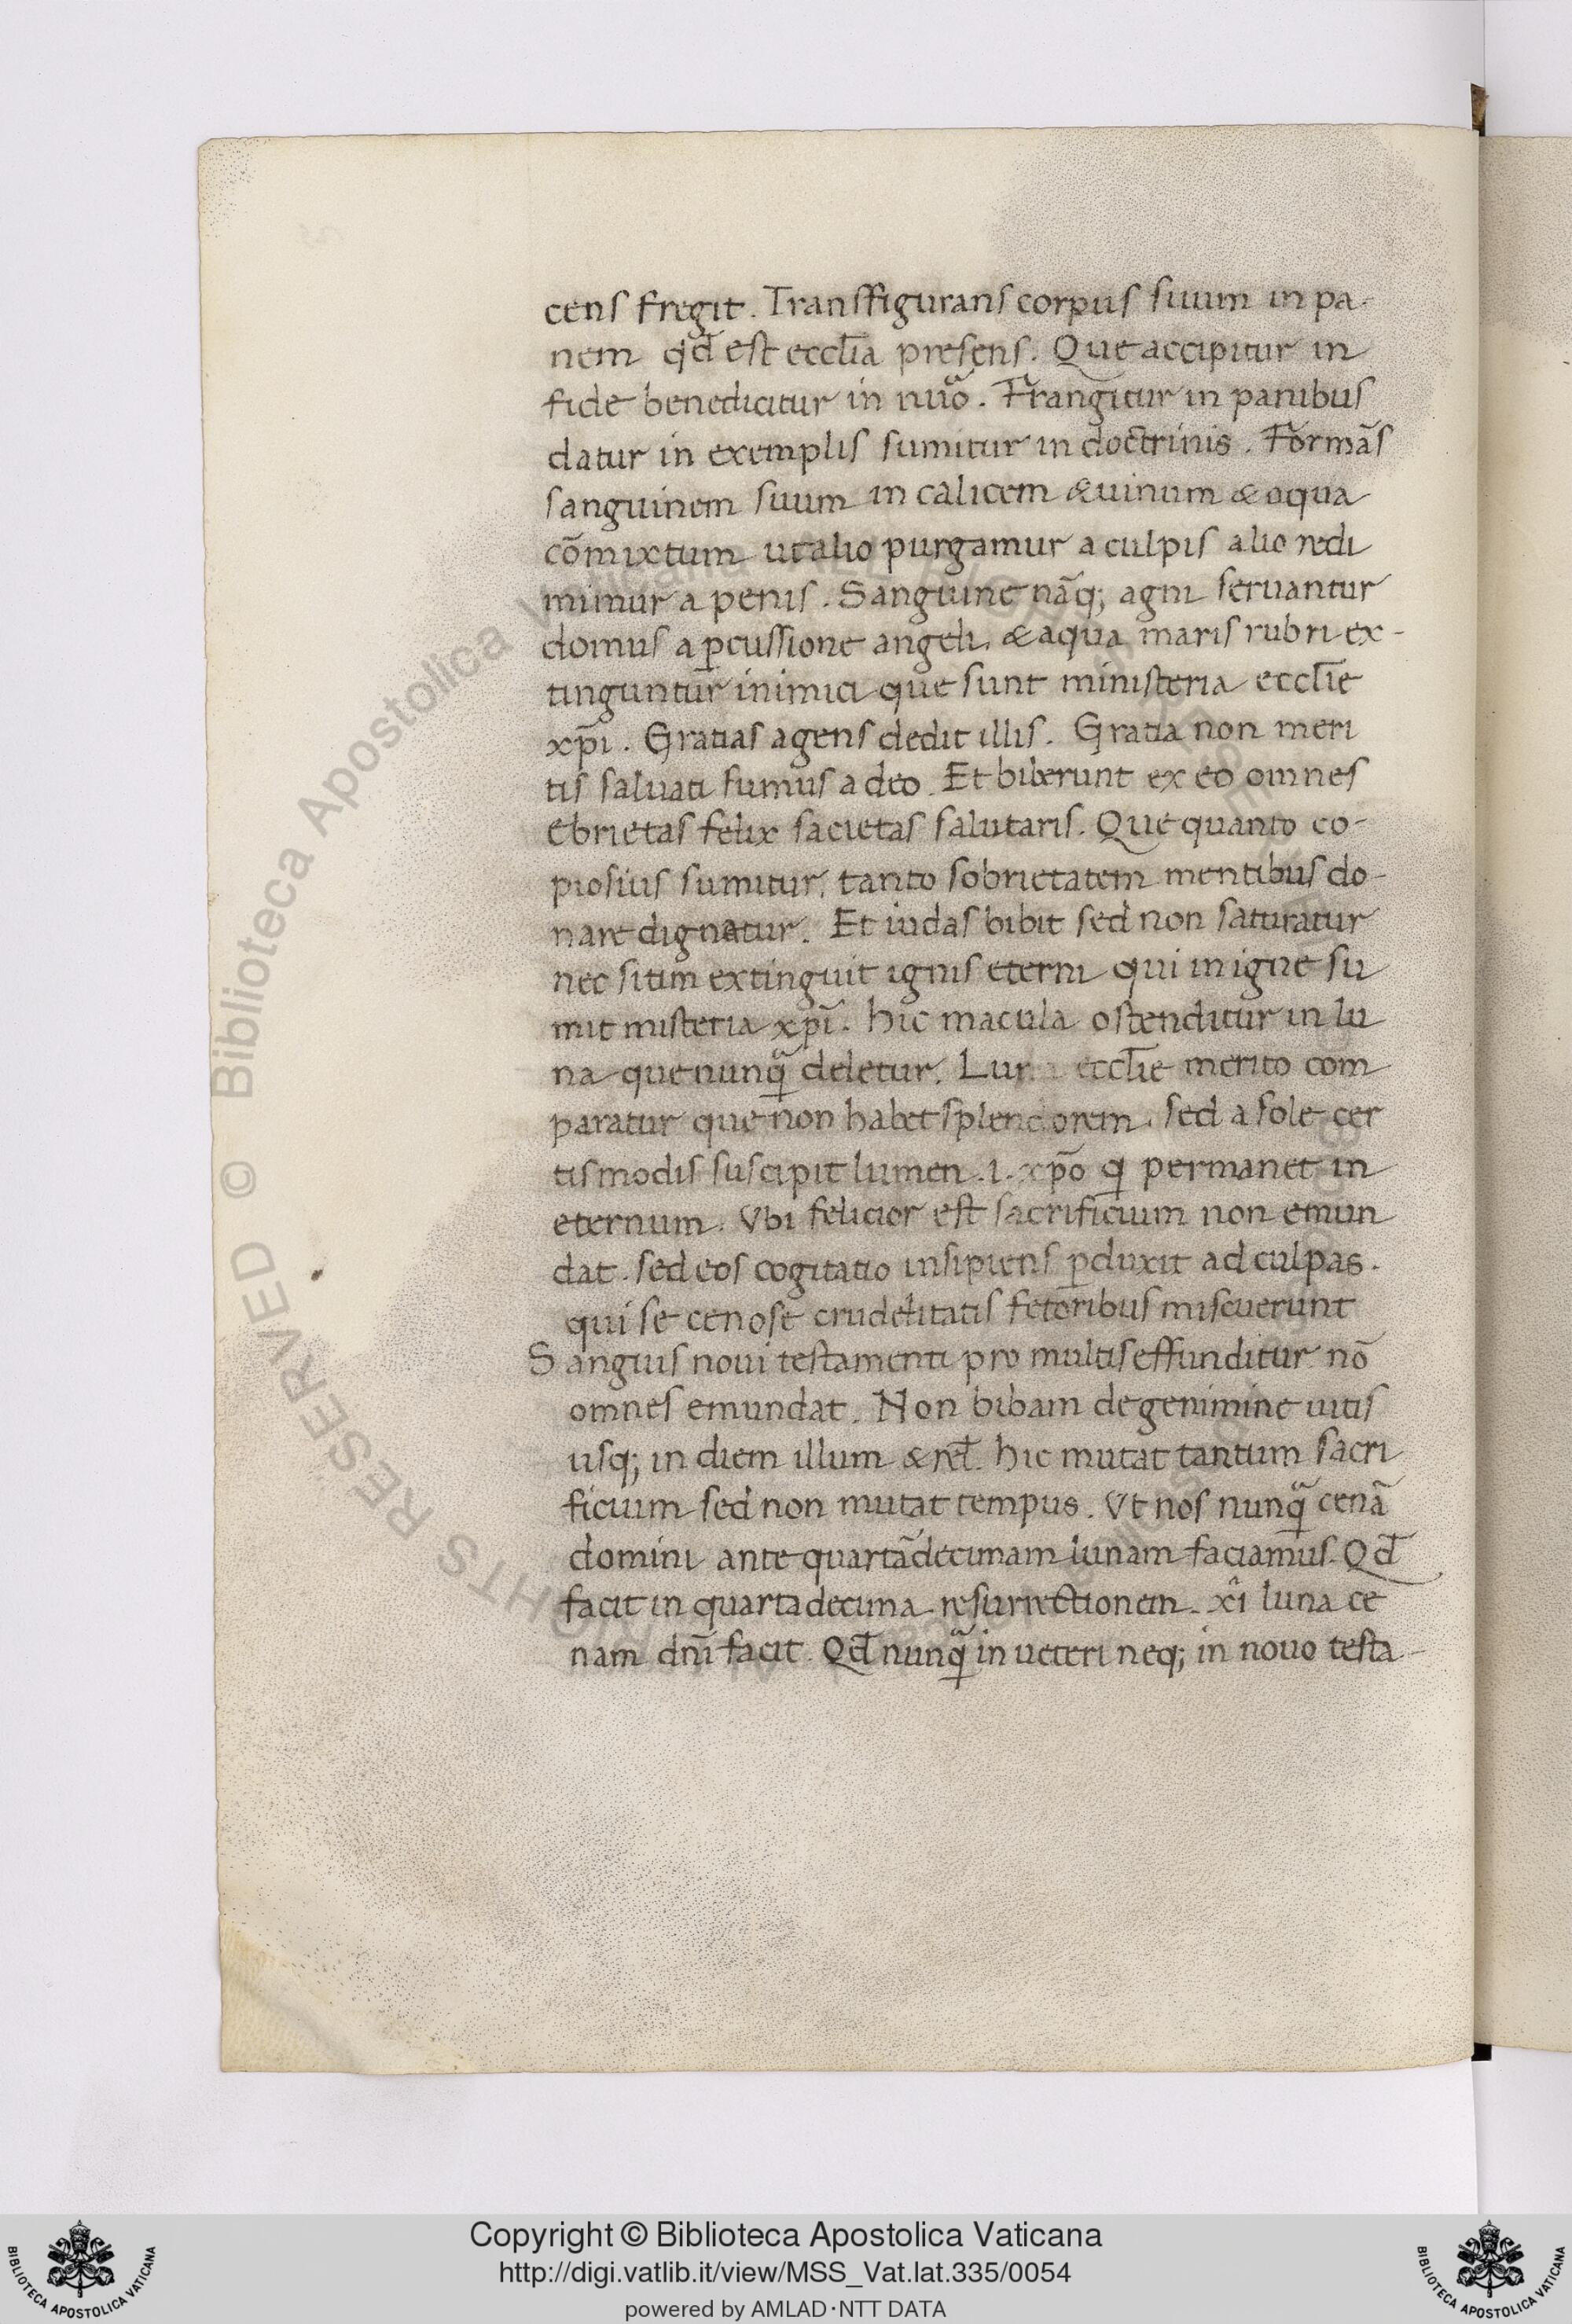 cens fregit. Transffigurans corpus suum in pa-
nem qd̄ est eccl̄ia presens. Que accipitur in
fide benedicitur in nūo. Frangitur in panibus
datur in exemplis sumitur in doctrinis. Formās
sanguinem suum in calicem & uinum & aqua
cōmixtum ut alio purgamur a culpis alio redi
mimur a penis. Sanguine nāq; agni seruantur
domus a ꝑcussione angeli, & aqua maris rubri ex-
tinguntur inimici que sunt ministeria eccl̄ie
xp̄i. Gratias agens dedit illis. Gratia non meri
tis saluati sumus a deo. Et biberunt ex eo omnes
Ebrietas felix sacietas salutaris. Que quanto co-
piosius sumitur, tanto sobrietatem mentibus do-
nare dignatur. Et iudas bibit sed non saturatur
nec sitim extinguit ignis eterni qui in igne su
mit misteria xp̄i. hic macula ostenditur in lu
na que nunq̄ deletur. Luna eccl̄ie merito com
paratur que non habet splendorem. sed a sole cer
tis modis suscipit lumen .i. xp̄o q permanet in
eternum. Vbi felicior est sacrificium non emun
dat. sed eos cogitatio insipiens ꝑduxit ad culpas.
qui se cenose crudelitatis fetoribus miscuerunt
Sanguis noui testamenti pro multis effunditur nō
omnes emundat. Non bibam de genimine uitis
usq; in diem illum & rel̄. hic mutat tantum sacri
ficium sed non mutat tempus. Vt nos nunq̄ cenā
domini ante quartādecimam lunam faciamus. Qd̄
facit in quartadecima resurrectionem. xi luna ce
nam dn̄i facit. Qd̄ nunq̄ in ueteri neq; in nouo testa-
Copyright © Biblioteca Apostolica Vaticana
http://digi.vatlib.it/view/MSS_Vat.lat.335/0054
powered by AMLAD·NTT DATA
BIBLIOTECA APOSTOLICA VATICANA
BIBLIOTECA APOSTOLICA VATICANA